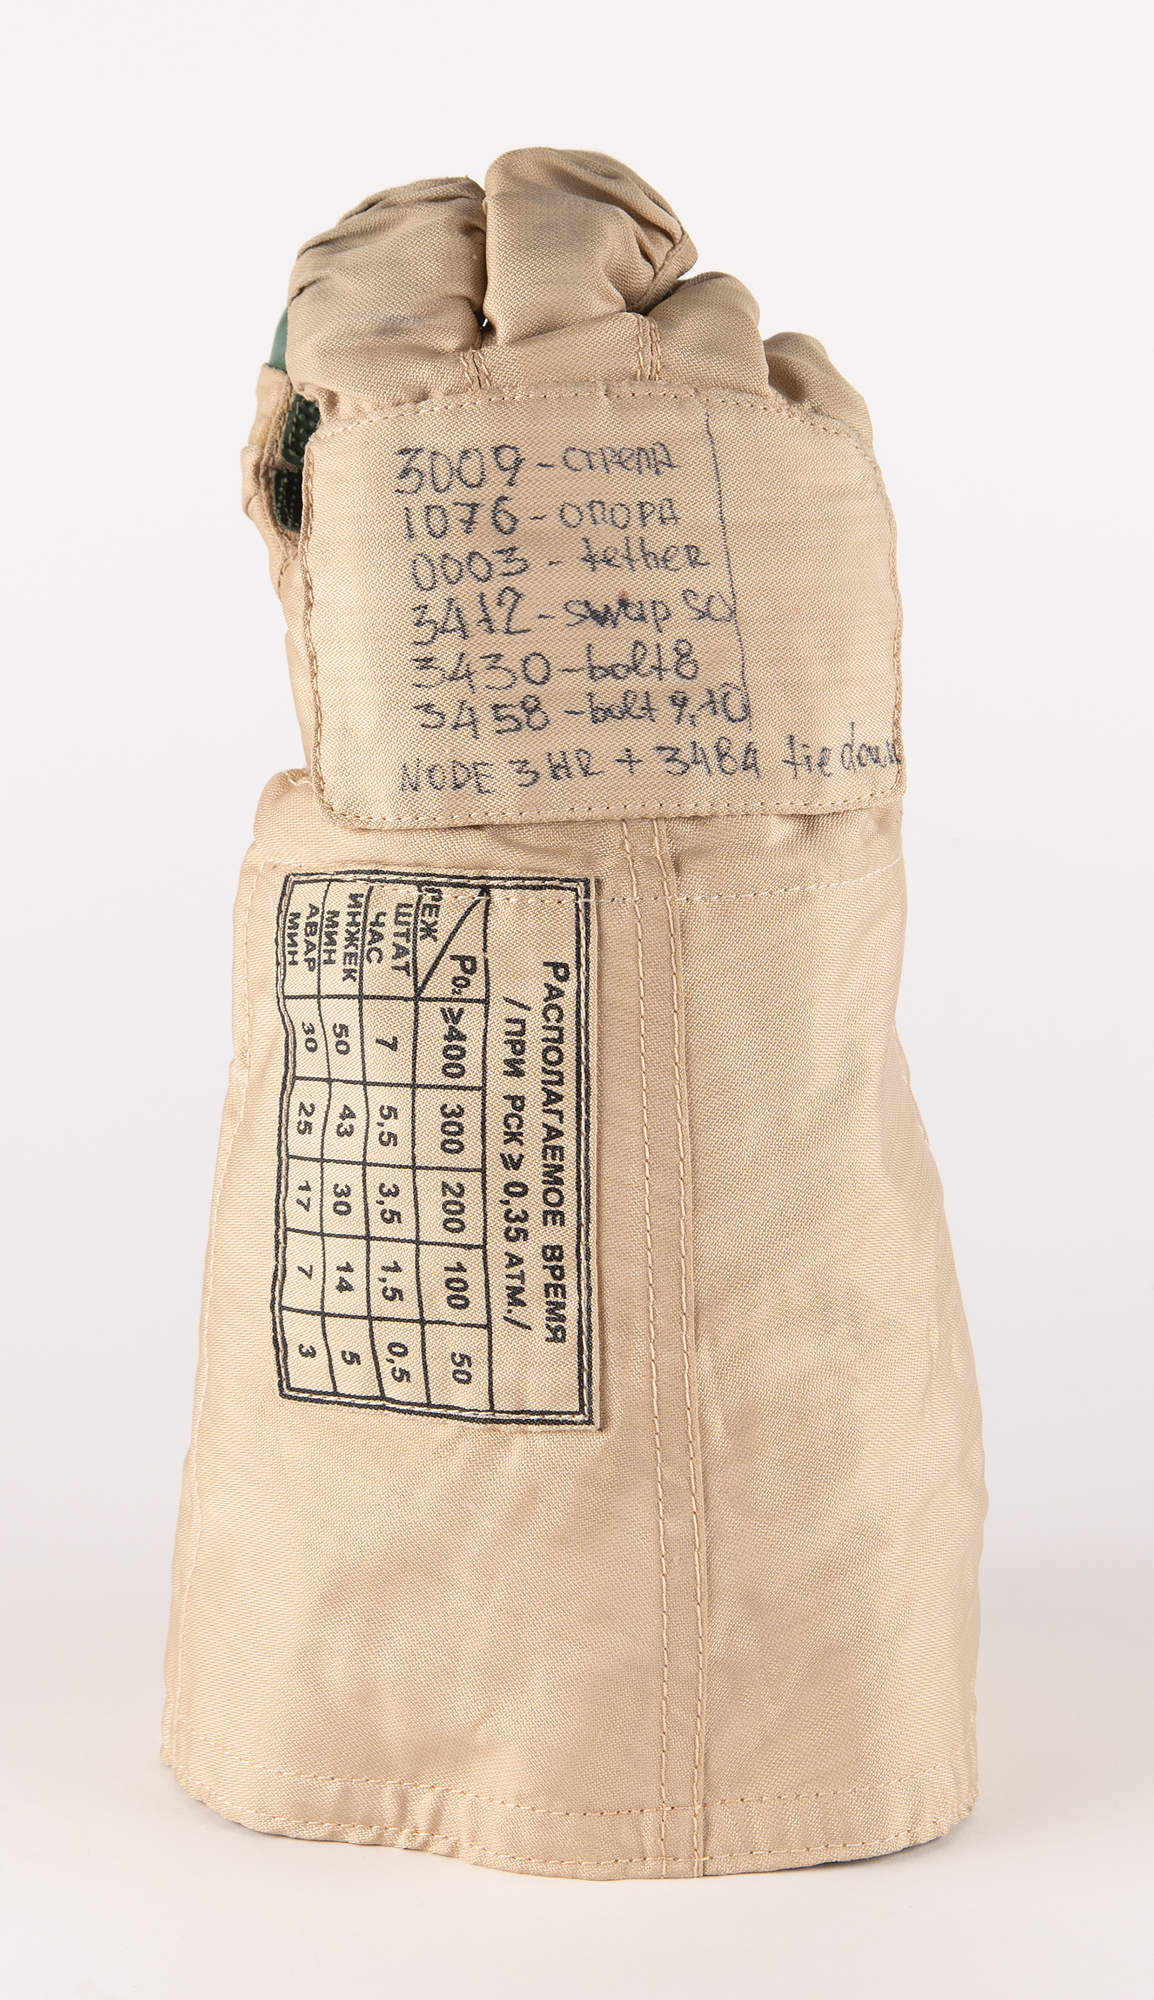 3009 - СТРЕЛА
1076 - ОПОРА
0003 - tether
3412 - swap SO
3430 - bolt 8
3458 - bolt 9,10
NODE 3 HR + 3484 tie down
РАСПОЛАГАЕМОЕ ВРЕМЯ
/ПРИ РСК ≥ 0,35 АТМ./
РЕЖ PO₂ ≥400 300 200 100 50
ШТАТ ЧАС 7 5,5 3,5 1,5 0,5
ИНЖЕК МИН 50 43 30 14 5
АВАР МИН 30 25 17 7 3